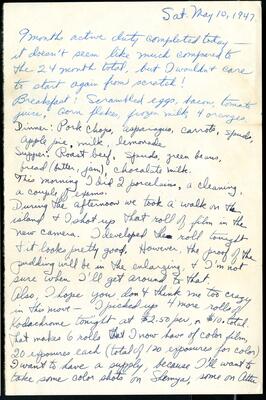 Sat. May 10, 1947
9 months active duty completed today —
it doesn't seem like much compared to
the 24 month total, but I wouldn't care
to start again from scratch!
Breakfast: Scrambled eggs, bacon, tomato
juice, corn flakes, frozen milk & oranges.
Dinner: Pork Chops, asparagus, carrots, spuds,
apple pie, milk, lemonade
Supper: Roast beef, spuds, green beans,
bread (butter, jam), chocolate milk.
This morning I did 2 porcelains, a cleaning,
a couple of exams.
During the afternoon we took a walk on the
island & I shot up that roll of film in the
new camera. I developed the roll tonight
& it looks pretty good. However, the proof of the
pudding will be in the enlarging, & I'm not
sure when I'll get around to that.
Also, I hope you don't think me too crazy
in this move — I picked up 4 more rolls of
Kodachrome tonight at $2.50 per, or $10. total.
That makes 6 rolls that I now have of color film,
20 exposures each (total of 120 exposures for color)
I want to have a supply, because I'll want to
take some color shots on Shemya, some on Attu